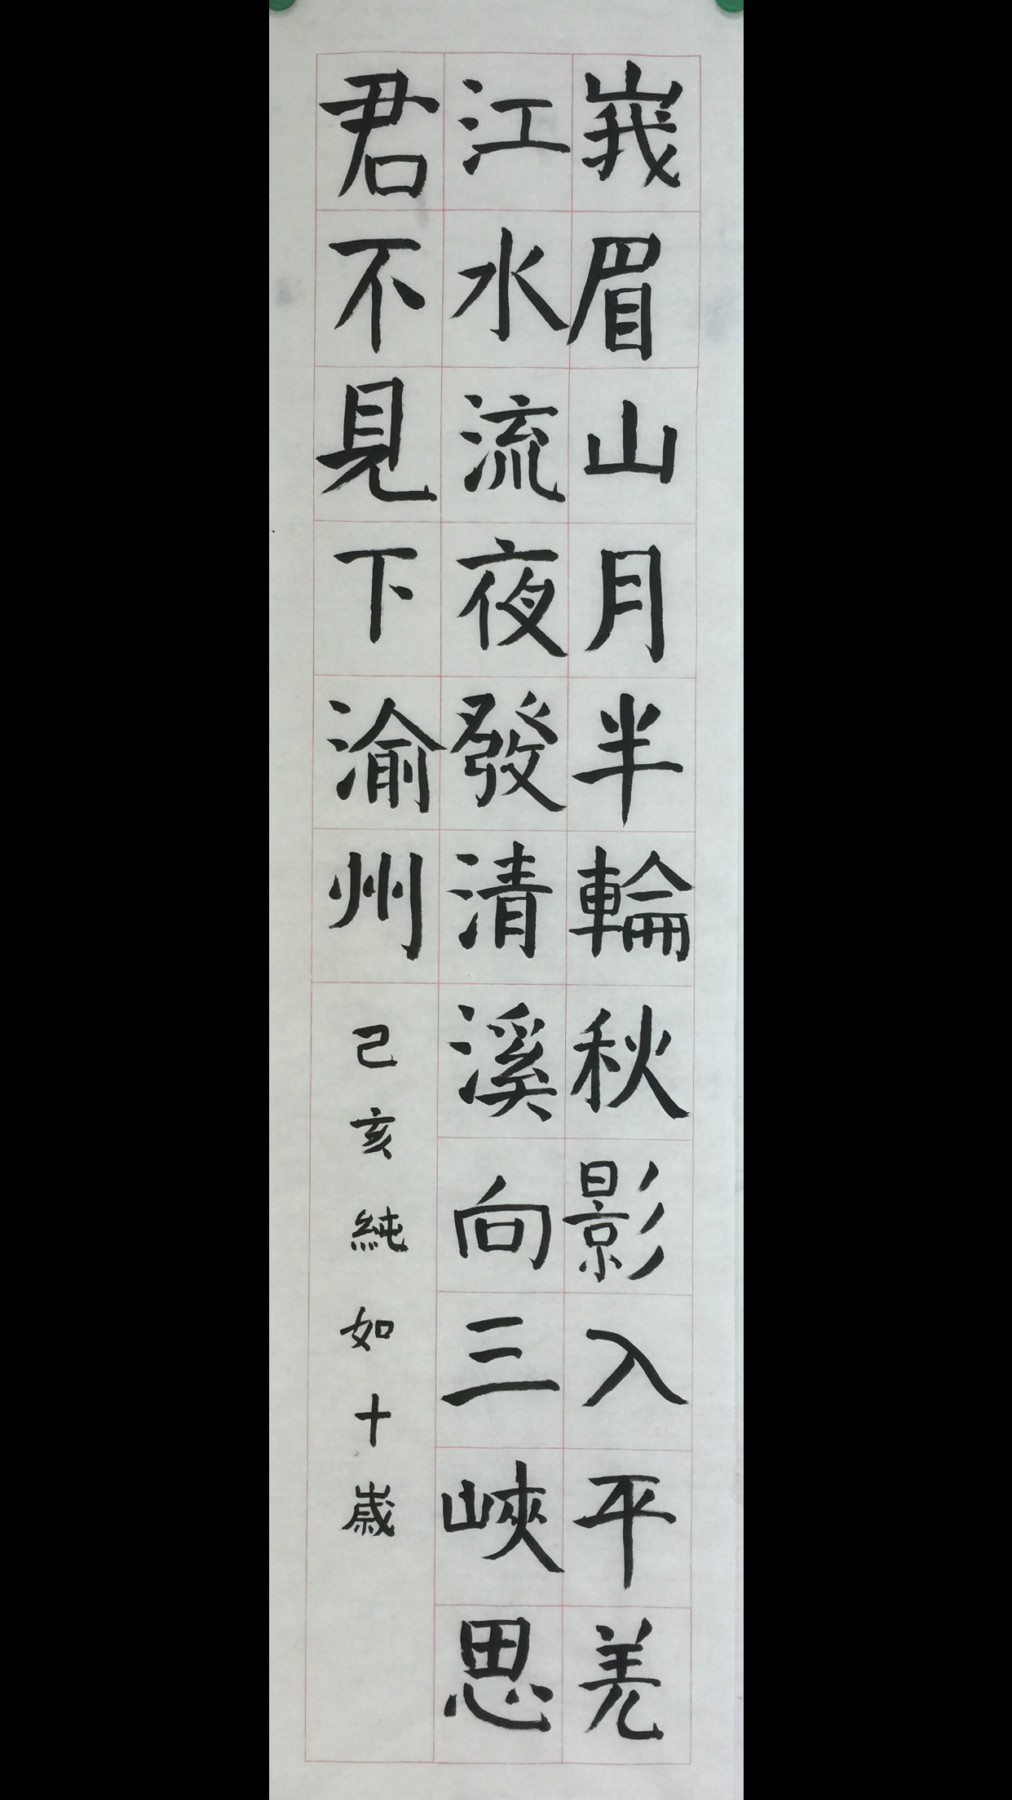 峩眉山月半輪秋影入平羌
江水流夜發清溪向三峽思
君不見下渝州
己亥純如十歲